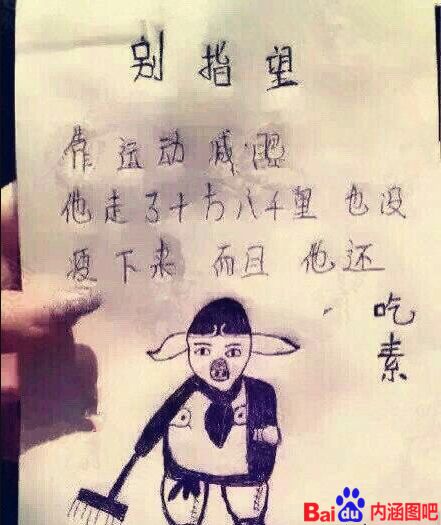 别指望
靠运动减肥
他走了十万八千里也没
瘦下来 而且 他还
吃素
Baidu 内涵图吧